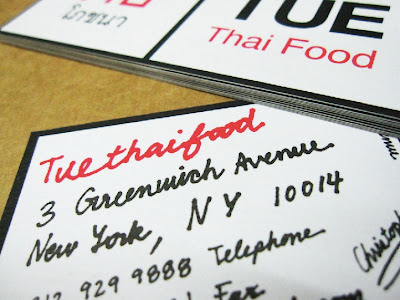 TUE
Thai Food
โภชนา
Tue thai food
3 Greenwich Avenue
New York, NY 10014
212 929 9888 Telephone
Fax
Christoph